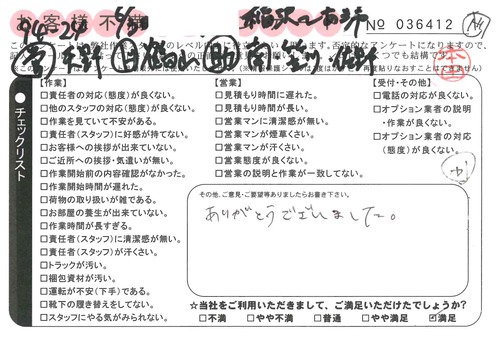 お客様不満
№ 036412
チェックリスト
【作業】
□責任者の対応(態度)が良くない。
□他のスタッフの対応(態度)が良くない。
□作業を見ていて不安がある。
□責任者(スタッフ)に好感が持てない。
□お客様への挨拶が出来ていない。
□ご近所への挨拶・気遣いが無い。
□作業開始前の内容確認がなかった。
□作業開始時間が遅れた。
□荷物の取り扱いが雑である。
□お部屋の養生が出来ていない。
□作業時間が長すぎる。
□責任者(スタッフ)に清潔感が無い。
□責任者(スタッフ)が汗くさい。
□トラックが汚い。
□梱包資材が汚い。
□運転が不安(下手)である。
□靴下の履き替えをしてない。
□スタッフにやる気がみられない。
【営業】
□見積もり時間に遅れた。
□見積もり時間が長い。
□営業マンに清潔感が無い。
□営業マンが煙草くさい。
□営業マンが汗くさい。
□営業態度が良くない。
□営業の説明と作業が一致してない。
【受付・その他】
□電話の対応が良くない。
□オプション業者の説明
・作業が良くない。
□オプション業者の対応
(態度)が良くない。
その他、ご意見・ご要望等ありましたらお書き下さい。
ありがとうございました。
☆当社をご利用いただきまして、ご満足いただけたでしょうか？
□不満 □やや不満 □普通 □やや満足 ☑満足